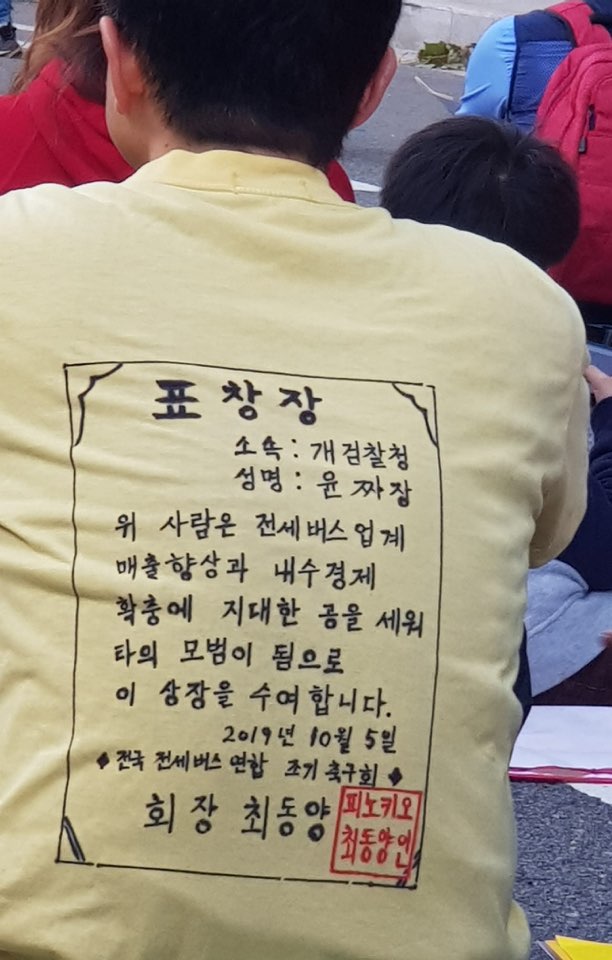 표창장
소속 : 개검찰청
성명 : 윤짜장
위 사람은 전세버스업계
매출향상과 내수경제
확충에 지대한 공을 세워
타의 모범이 됨으로
이 상장을 수여합니다.
2019년 10월 5일
◆전국 전세버스 연합 조기 축구회◆
회장 최동양
피노키오
최동양인